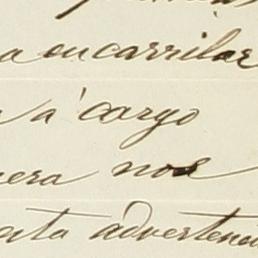 a encarrilar
a á cargo
nera nos
esta advertenci